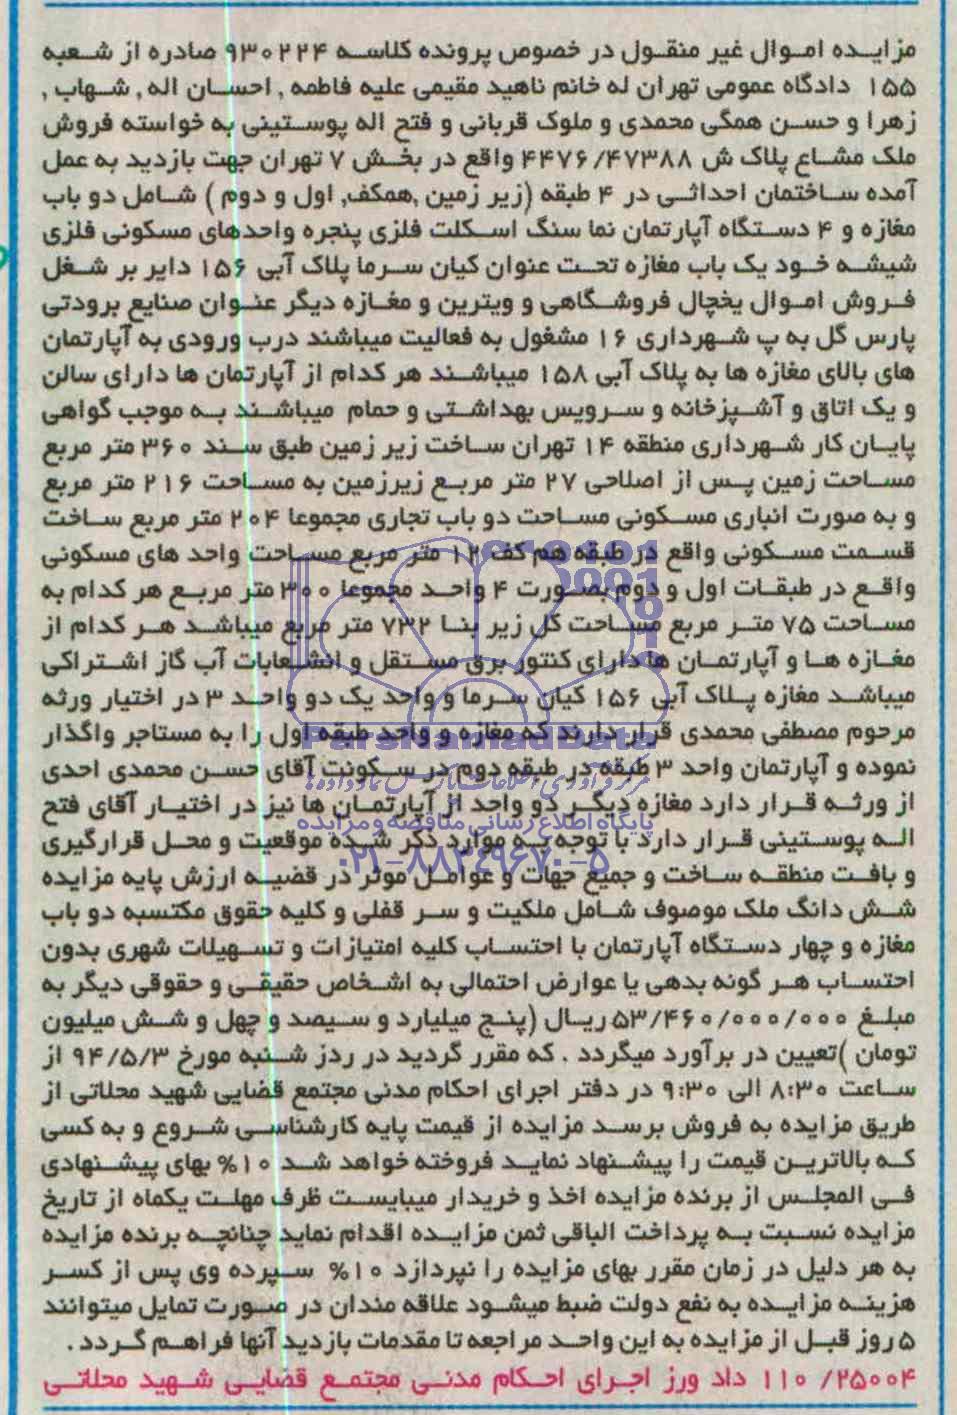 مزایده اموال غیر منقول در خصوص پرونده کلاسه ۹۳۰۲۲۴ صادره از شعبه
۱۵۵ دادگاه عمومی تهران له خانم ناهید مقیمی علیه فاطمه , احسان اله , شهاب ,
زهرا و حسن همگی محمدی و ملوک قربانی و فتح اله پوستینی به خواسته فروش
ملک مشاع پلاک ش ۴۴۷۶/۴۷۳۸۸ واقع در بخش ۷ تهران جهت بازدید به عمل
آمده ساختمان احداثی در ۴ طبقه (زیر زمین ,همکف, اول و دوم ) شامل دو باب
مغازه و ۴ دستگاه آپارتمان نما سنگ اسکلت فلزی پنجره واحدهای مسکونی فلزی
شیشه خود یک باب مغازه تحت عنوان کیان سرما پلاک آبی ۱۵۶ دایر بر شغل
فروش اموال یخچال فروشگاهی و ویترین و مغازه دیگر عنوان صنایع برودتی
پارس گل به پ شهرداری ۱۶ مشغول به فعالیت میباشند درب ورودی به آپارتمان
های بالای مغازه ها به پلاک آبی ۱۵۸ میباشند هر کدام از آپارتمان ها دارای سالن
و یک اتاق و آشپزخانه و سرویس بهداشتی و حمام میباشند به موجب گواهی
پایان کار شهرداری منطقه ۱۴ تهران ساخت زیر زمین طبق سند ۳۶۰ متر مربع
مساحت زمین پس از اصلاحی ۲۷ متر مربع زیرزمین به مساحت ۲۱۶ متر مربع
و به صورت انباری مسکونی مساحت دو باب تجاری مجموعا ۲۰۴ متر مربع ساخت
قسمت مسکونی واقع در طبقه هم کف ۱۲ متر مربع مساحت واحد های مسکونی
واقع در طبقات اول و دوم بصورت ۴ واحد مجموعا ۳۰۰ متر مربع هر کدام به
مساحت ۷۵ متر مربع مساحت کل زیر بنا ۷۳۲ متر مربع میباشد هر کدام از
مغازه ها و آپارتمان ها دارای کنتور برق مستقل و انشعابات آب گاز اشتراکی
میباشد مغازه پلاک آبی ۱۵۶ کیان سرما و واحد یک دو واحد ۳ در اختیار ورثه
مرحوم مصطفی محمدی قرار دارند که مغازه و واحد طبقه اول را به مستاجر واگذار
ParsNamadData
نموده و آپارتمان واحد ۳ طبقه در طبقه دوم در سکونت آقای حسن محمدی احدی
از ورثه قرار دارد مغازه دیگر دو واحد از آپارتمان ها نیز در اختیار آقای فتح
پایگاه اطلاع رسانی مناقصه و مزایده
اله پوستینی قرار دارد با توجه به موارد ذکر شده موقعیت و محل قرارگیری
۰۲۱-۸۸۳۴۹۶۷۰-۵
و بافت منطقه ساخت و جمیع جهات و عوامل موثر در قضیه ارزش پایه مزایده
شش دانگ ملک موصوف شامل ملکیت و سر قفلی و کلیه حقوق مکتسبه دو باب
مغازه و چهار دستگاه آپارتمان با احتساب کلیه امتیازات و تسهیلات شهری بدون
احتساب هر گونه بدهی یا عوارض احتمالی به اشخاص حقیقی و حقوقی دیگر به
مبلغ ۵۳/۴۶۰/۰۰۰/۰۰۰ ریال (پنج میلیارد و سیصد و چهل و شش میلیون
تومان )تعیین در برآورد میگردد . که مقرر گردید در ردز شنبه مورخ ۹۴/۵/۳ از
ساعت ۸:۳۰ الی ۹:۳۰ در دفتر اجرای احکام مدنی مجتمع قضایی شهید محلاتی از
طریق مزایده به فروش برسد مزایده از قیمت پایه کارشناسی شروع و به کسی
که بالاترین قیمت را پیشنهاد نماید فروخته خواهد شد ۱۰% بهای پیشنهادی
فی المجلس از برنده مزایده اخذ و خریدار میبایست ظرف مهلت یکماه از تاریخ
مزایده نسبت به پرداخت الباقی ثمن مزایده اقدام نماید چنانچه برنده مزایده
به هر دلیل در زمان مقرر بهای مزایده را نپردازد ۱۰% سپرده وی پس از کسر
هزینه مزایده به نفع دولت ضبط میشود علاقه مندان در صورت تمایل میتوانند
۵ روز قبل از مزایده به این واحد مراجعه تا مقدمات بازدید آنها فراهم گردد .
۱۱۰ /۲۵۰۰۴ داد ورز اجرای احکام مدنی مجتمع قضایی شهید محلاتی